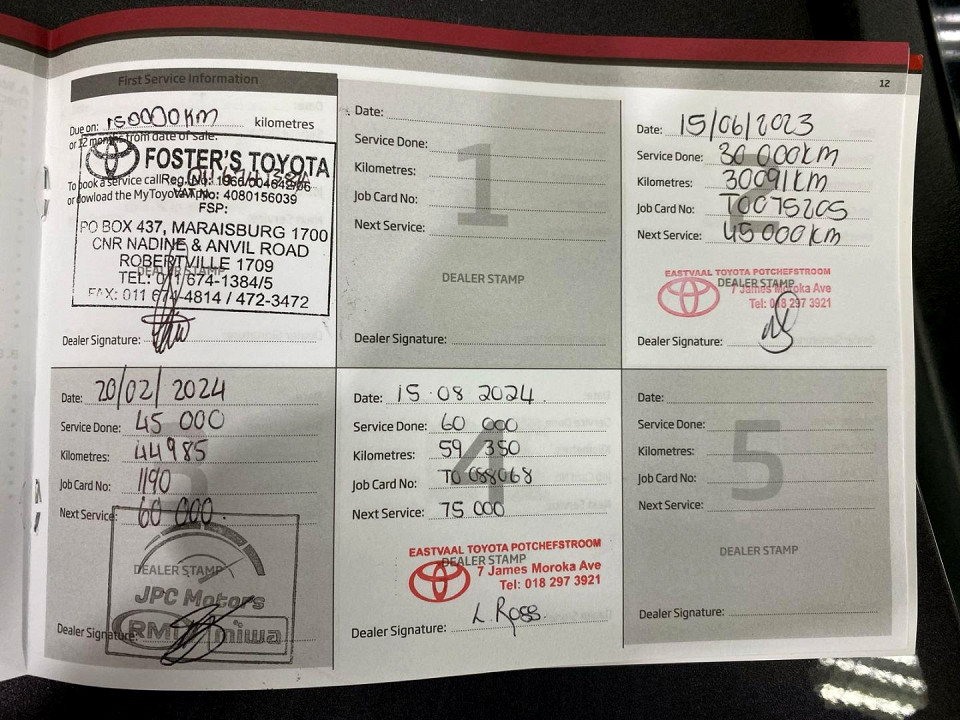 First Service Information
Due on: 150000km kilometres
or 12 months from date of sale.
To book a service call
or dowload the MyToyota
FOSTER'S TOYOTA
Reg. No: 1966/004642/06
VAT No: 4080156039
FSP:
PO BOX 437, MARAISBURG 1700
CNR NADINE & ANVIL ROAD
ROBERTVILLE 1709
DEALER STAMP
TEL: 011/674-1384/5
FAX: 011 674-4814 / 472-3472
Dealer Signature:
Date:
Service Done:
Kilometres:
Job Card No:
Next Service:
1
DEALER STAMP
Dealer Signature:
12
Date: 15/06/2023
Service Done: 30 000km
Kilometres: 30091km
Job Card No: T0075205
Next Service: 45 000km
EASTVAAL TOYOTA POTCHEFSTROOM
DEALER STAMP
7 James Moroka Ave
Tel: 018 297 3921
Dealer Signature:
Date: 20/02/2024
Service Done: 45 000
Kilometres: 44985
Job Card No: 1190
Next Service: 60 000.
3
DEALER STAMP
JPC Motors
RMI miwa
Dealer Signature:
Date: 15.08 2024.
Service Done: 60 000
Kilometres: 59 350
Job Card No: T0 088068
Next Service: 75 000
4
EASTVAAL TOYOTA POTCHEFSTROOM
DEALER STAMP
7 James Moroka Ave
Tel: 018 297 3921
Dealer Signature: L. Ross.
Date:
Service Done:
Kilometres:
Job Card No:
Next Service:
5
DEALER STAMP
Dealer Signature: